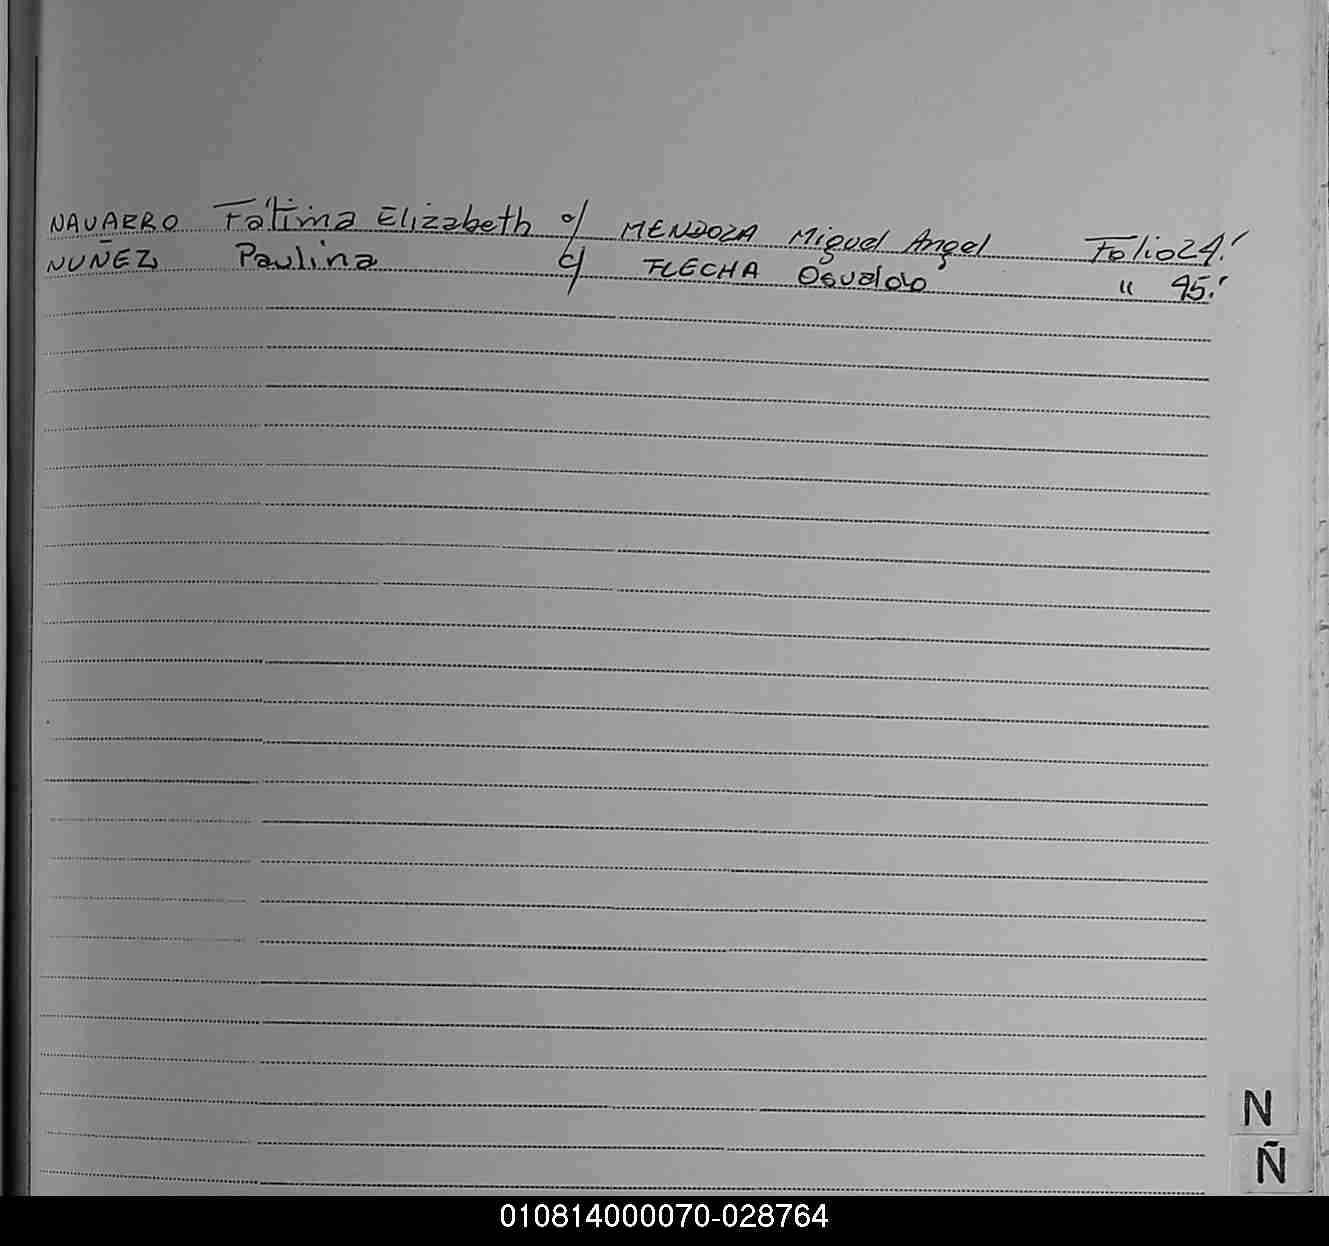 NAVARRO Fátima Elizabeth c/ MENDOZA Miguel Angel Folio 24.'
NUÑEZ Paulina c/ FLECHA Osvaldo " 95.'
N
Ñ
010814000070-028764